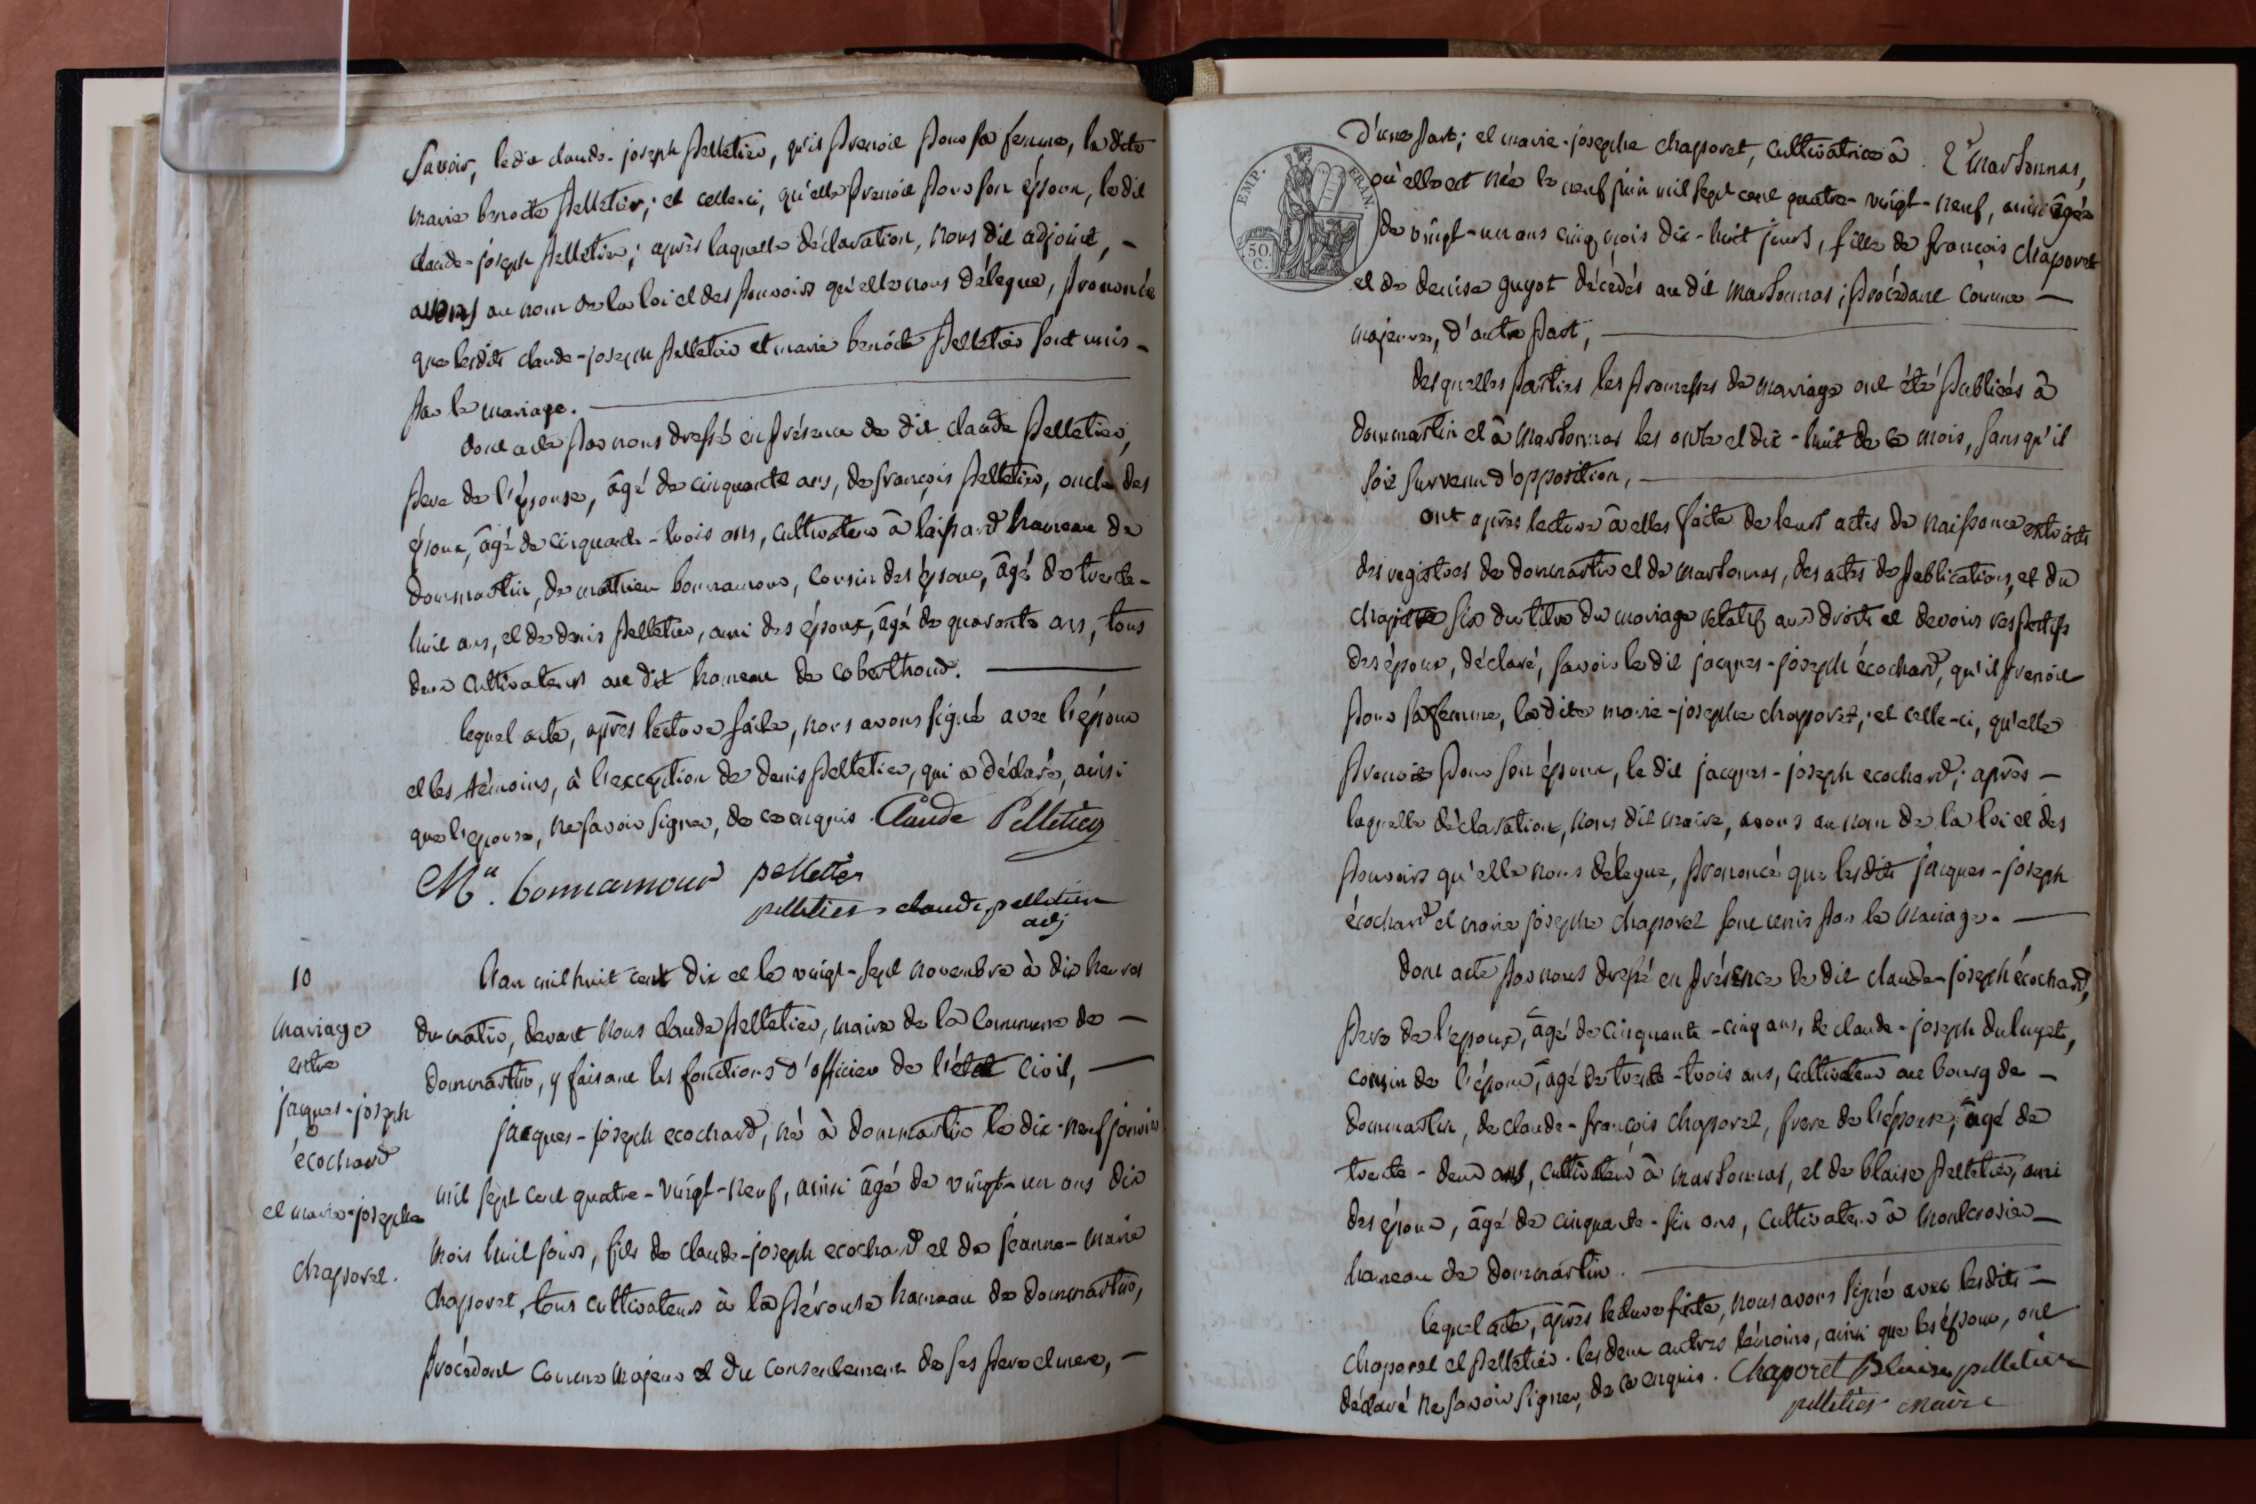 Savoir, ledit claude-joseph Pelletier, qu'il Prenoit Pour sa femme, la dite
marie benoite Pelletier; et celle-ci, qu'elle Prenoit Pour son époux, le dit
claude-joseph Pelletier; après laquelle déclaration, nous dit adjoint, -
avons au nom de la loi et des Pouvoirs qu'elle nous délegue, Prononcé
que lesdits claude-joseph Pelletier et marie benoite Pelletier sont unis -
Par le mariage.
dont acte Par nous dressé en Présence de dit claude Pelletier,
Pere de l'épouse, âgé de cinquante ans, de françois Pelletier, oncle des
époux, âgé de cinquante-trois ans, cultivateur à laissard hameau de
dommartin, de mathieu bonnamour, cousin des époux, âgé de trente-
huit ans, et de denis Pelletier, ami des époux, âgé de quarante ans, tous
deux cultivateurs au dit hameau de coberthoud.
lequel acte, après lecture faite, nous avons signé avec l'époux
et les témoins, à l'exception de denis Pelletier, qui a déclaré, ainsi
que l'epouse, ne savoir signer, de ce enquis. Claude Pelletier
Mu. bonnamour pelletier
pelletier claude pelletier
adj
10
mariage
entre
jacques-joseph
écochard
et marie-josephe
chaporet.
L'an mil huit cent dix et le vingt-sept novembre à dix heures
du matin, devant nous claude Pelletier, maire de la Commune de -
dommartin, y faisant les fonctions d'officier de l'état Civil,
jacques-joseph ecochard, né à dommartin le dix-neuf janvier
mil sept cent quatre-vingt-neuf, ainsi âgé de vingt-un ans dix
mois huit jours, fils de claude-joseph ecochard et de jeanne-marie
chaporet, tous cultivateurs à la Pérouse hameau de dommartin,
Procédant comme majeur et du consentement de ses Pere et mere, -
EMP. FRAN.
50.
C.
D'une Part; et marie-josephe chaporet, cultivatrice à marsonnas,
où elle est née le neuf juin mil sept cent quatre-vingt-neuf, ainsi âgée
de vingt-un ans cinq mois dix-huit jours, fille de françois chaporet
et de denise guyot décédés au dit marsonnas; Procédant comme
majeure, d'autre Part,
desquelles Parties les Promesses de mariage ont été Publiées à
dommartin et à marsonnas les onze et dix-huit de ce mois, sans qu'il
soit survenu d'opposition,
ont après lecture à elles faite de leurs actes de naissance extraits
des registres de dommartin et de marsonnas, des actes de Publication, et du
chapitre six du titre du mariage relatif aux droits et devoirs respectifs
des époux, déclaré, savoir le dit jacques-joseph écochard, qu'il Prenoit
Pour sa femme, la dite marie-josephe chaporet; et celle-ci, qu'elle
Prenoit Pour son époux, le dit jacques-joseph ecochard; après -
laquelle déclaration, nous dit maire, avons au nom de la loi et des
Pouvoirs qu'elle nous délegue, Prononcé que lesdits jacques-joseph
écochard et marie josephe chaporet sont unis Par le mariage.
dont acte Par nous dressé en Présence de dit claude-joseph écochard,
Pere de l'epoux, âgé de cinquante-cinq ans, de claude-joseph duluyet,
cousin de l'époux, âgé de trente-trois ans, cultivateur au bourg de -
dommartin, de claude-françois chaporet, frere de l'épouse, âgé de
trente-deux ans, cultivateur à marsonnas, et de blaise Pelletier, ami
des époux, âgé de cinquante-six ans, cultivateur à montcrosier
hameau de dommartin.
lequel acte, après lecture faite, nous avons signé avec lesdits -
chaporet et Pelletier. les deux autres témoins, ainsi que les époux, ont
déclaré ne savoir signer, de ce enquis. Chaporet Blaise pelletier
pelletier maire